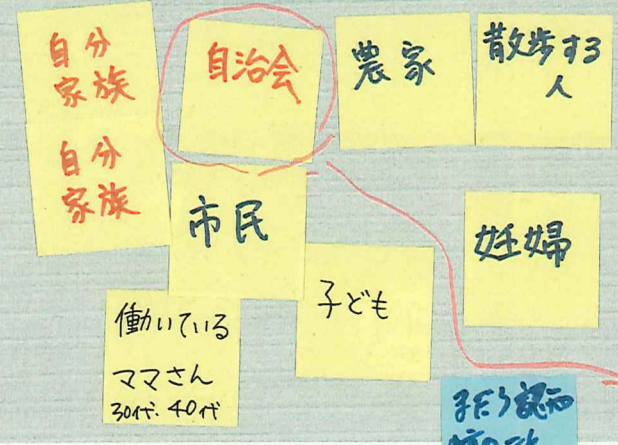 自分
家族
自治会
農家
散歩する
人
自分
家族
市民
妊婦
子ども
働いている
ママさん
30代、40代